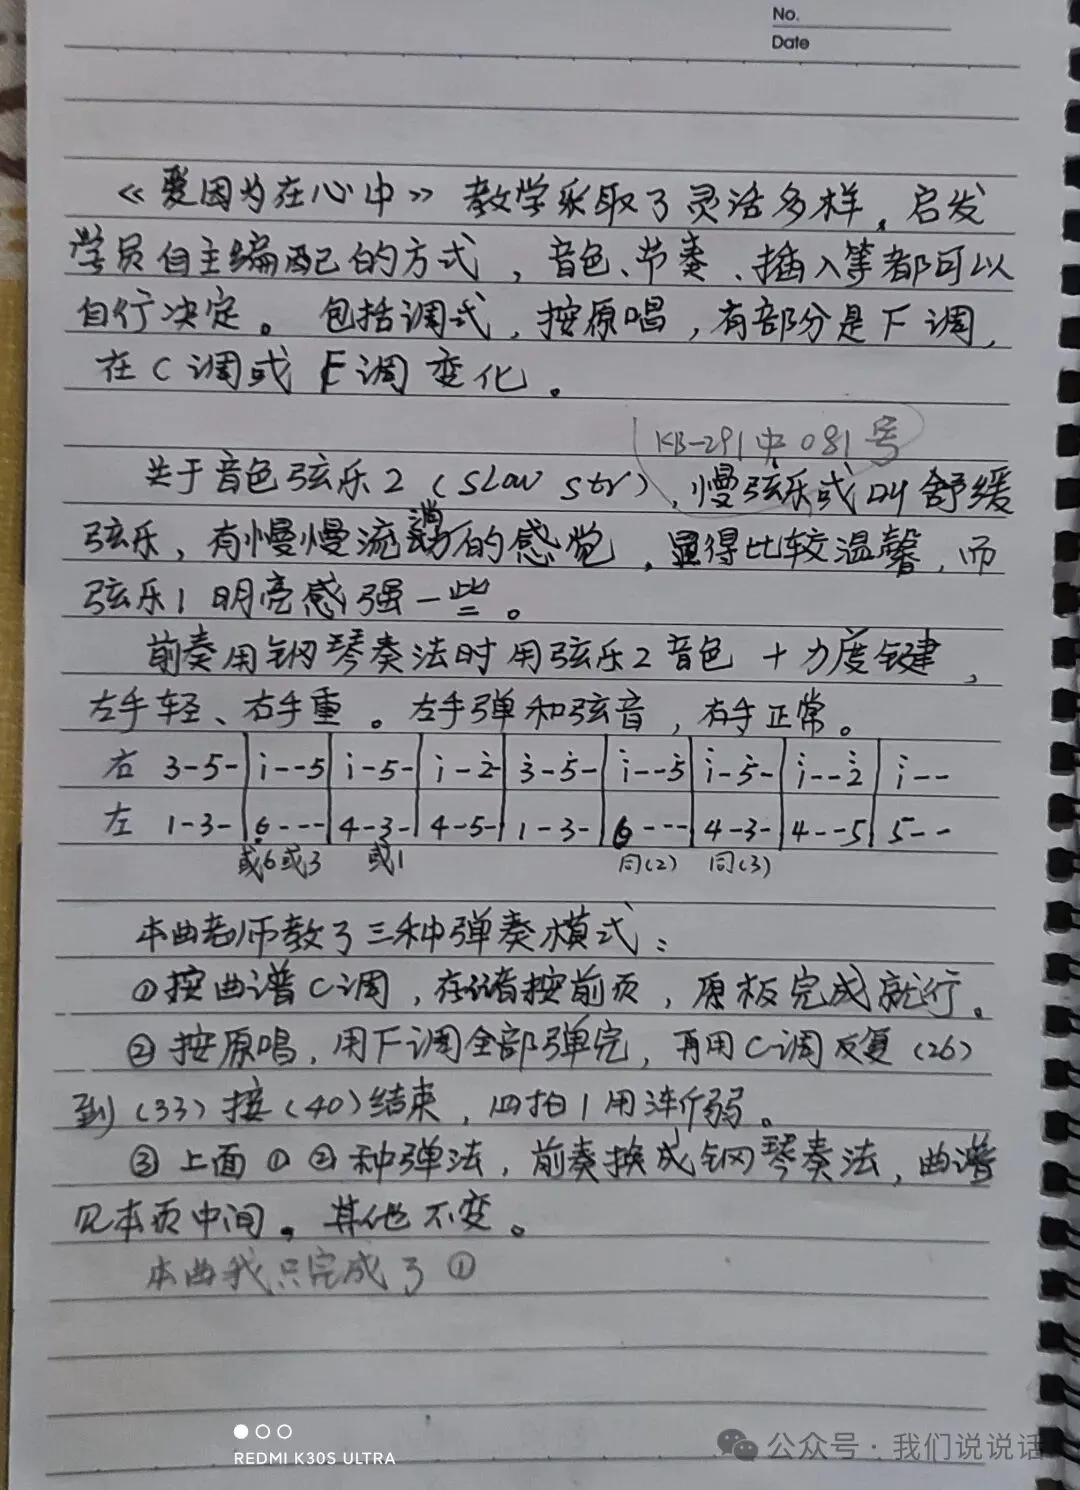 No.
Date
《爱因为在心中》教学采取了灵活多样，启发
学员自主编配的方式，音色、节奏、插入等都可以
自行决定。包括调式，按原唱，有部分是F调，
在C调或F调变化。
KB-291中081号
关于音色弦乐2（slow str），慢弦乐或叫舒缓
弦乐，有慢慢流淌的感觉，显得比较温馨，而
弦乐1明亮感强一些。
前奏用钢琴奏法时用弦乐2音色+力度键，
左手轻、右手重。左手弹和弦音，右手正常。
右 3-5-|i--5|i-5-|i-2̇|3̇-5̇-|i--5̇|i-5̇-|i--2̇|i--
左 1-3-|6---|4-3-|4-5-|1-3-|6---|4-3-|4--5|5--
或6或3 或1 同(2) 同(3)
本曲老师教了三种弹奏模式：
①按曲谱C调，存谱按前页，原板完成就行。
②按原唱，用F调全部弹完，再用C调反复(26)
到(33)接(40)结束，四拍1用渐弱。
③上面①②种弹法，前奏换成钢琴奏法，曲谱
见本页中间。其他不变。
本曲我只完成了①
REDMI K30S ULTRA
公众号·我们说说话